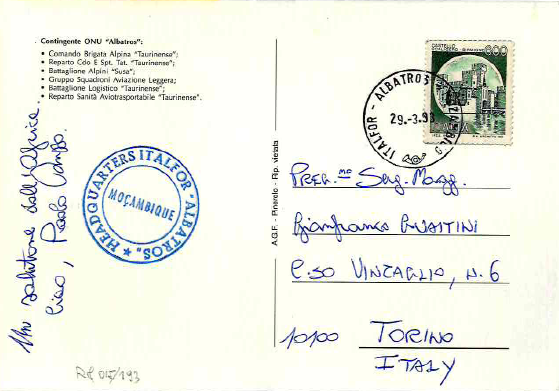 Contingente ONU "Albatros":
• Comando Brigata Alpina "Taurinense";
• Reparto Cdo E Spt. Tat. "Taurinense";
• Battaglione Alpini "Susa";
• Gruppo Squadroni Aviazione Leggera;
• Battaglione Logistico "Taurinense";
• Reparto Sanità Aviotrasportabile "Taurinense".
Un salutone dall'Africa.
Ciao, Paolo
HEADQUARTERS ITALFOR "ALBATROS"
MOÇAMBIQUE
A.G.F. - Pinerolo - Rip. vietata
ITALFOR - ALBATROS
29.-3.93
CASTELLO
600
ITALIA
PREG.mo Serg. Magg.
Gianfranco GUAITINI
C.so VINZAGLIO, N. 6
10100 TORINO
ITALY
RP 015/193